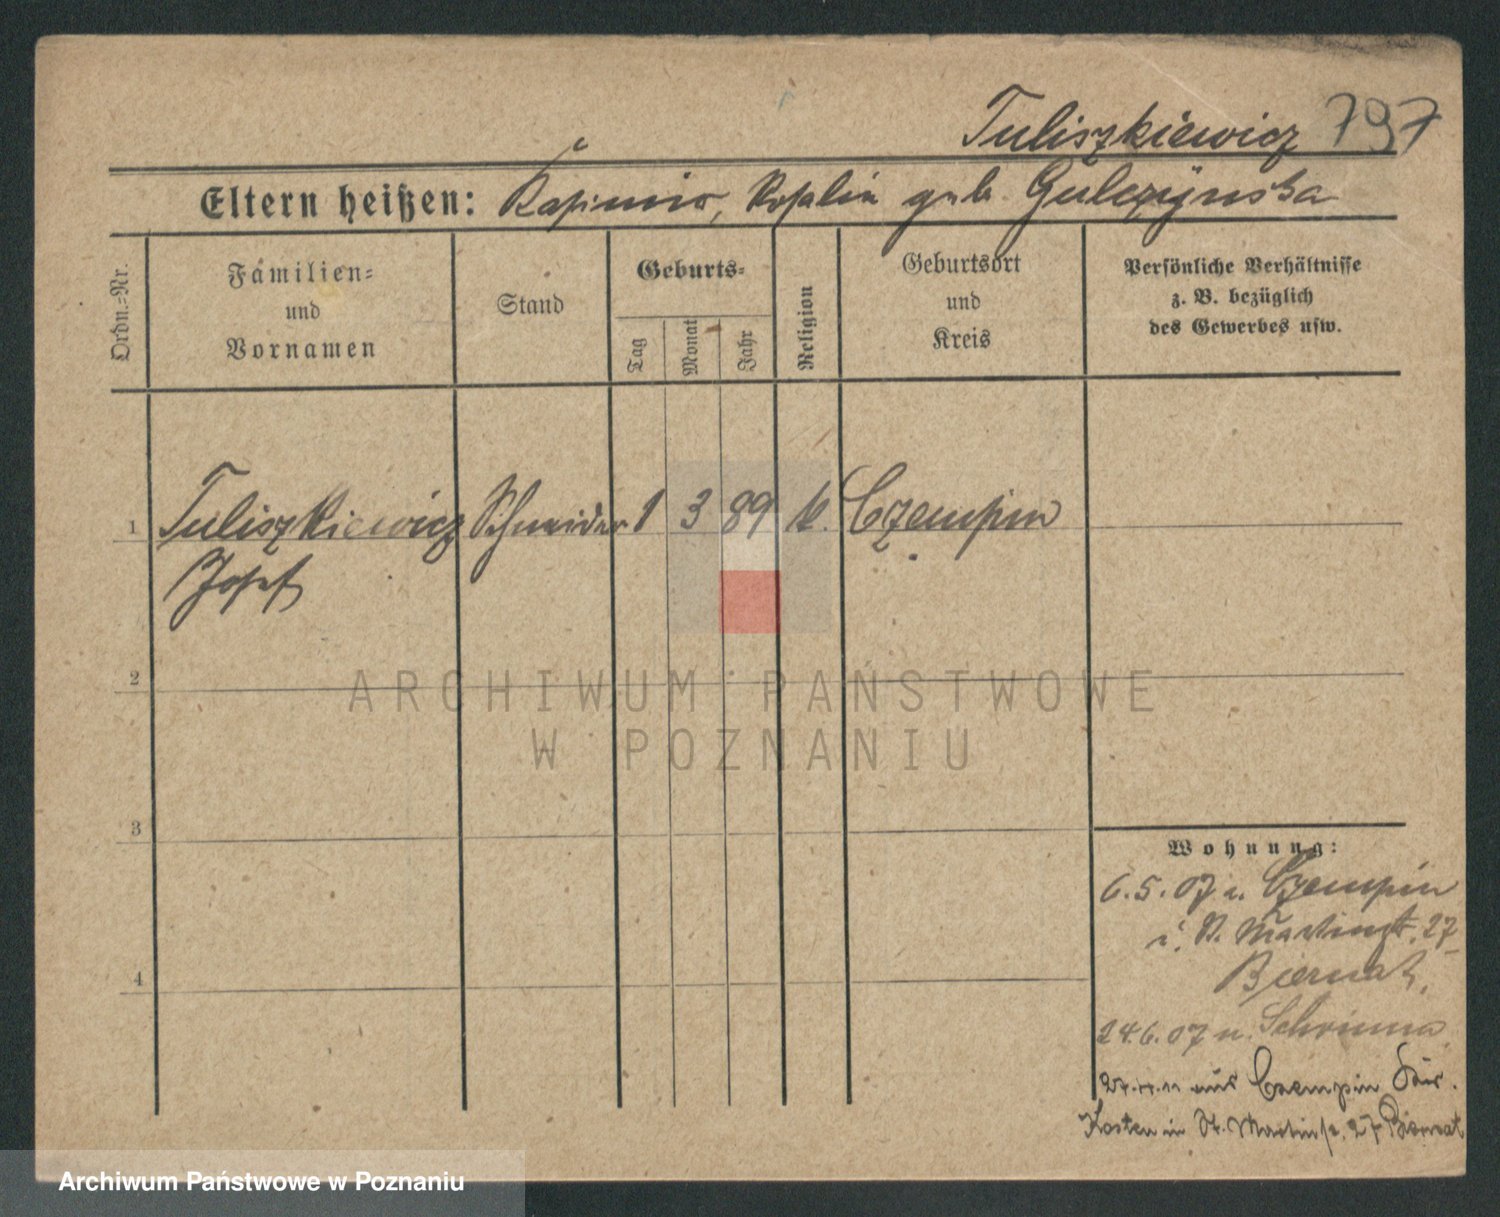 Tuliszkiewicz 797
Eltern heißen: Kasimir, Rosalie geb. Gulczynska
Ordn.-Nr.
Familien-
und
Vornamen
Stand
Geburts-
Tag
Monat
Jahr
Religion
Geburtsort
und
Kreis
Persönliche Verhältnisse
z. B. bezüglich
des Gewerbes usw.
1 Tuliszkiewicz Schneider 1 3 89 k. Czempin
Josef
2
3
4
Wohnung:
6.5.07 v. Czempin
i. St. Martinstr. 27
Biernat,
24.6.07 n. Schrimm
aus Czempin
Kosten in St. Martinstr. 27 Biernat
ARCHIWUM PAŃSTWOWE
W POZNANIU
Archiwum Państwowe w Poznaniu